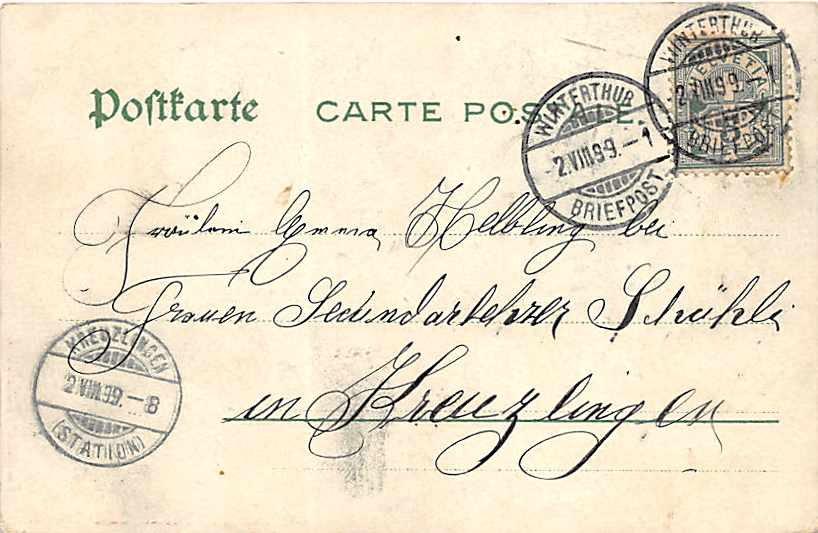 WINTERTHUR
2.VIII.99.-1
BRIEFPOST
HELVETIA
5
Postkarte CARTE POSTALE.
WINTERTHUR
2.VIII.99.-1
BRIEFPOST
Fräulein Emma Helbling bei
Frauen Secundarlehrer Stähli
in Kreuzlingen
KREUZLINGEN
2.VIII.99.-8
(STATION)